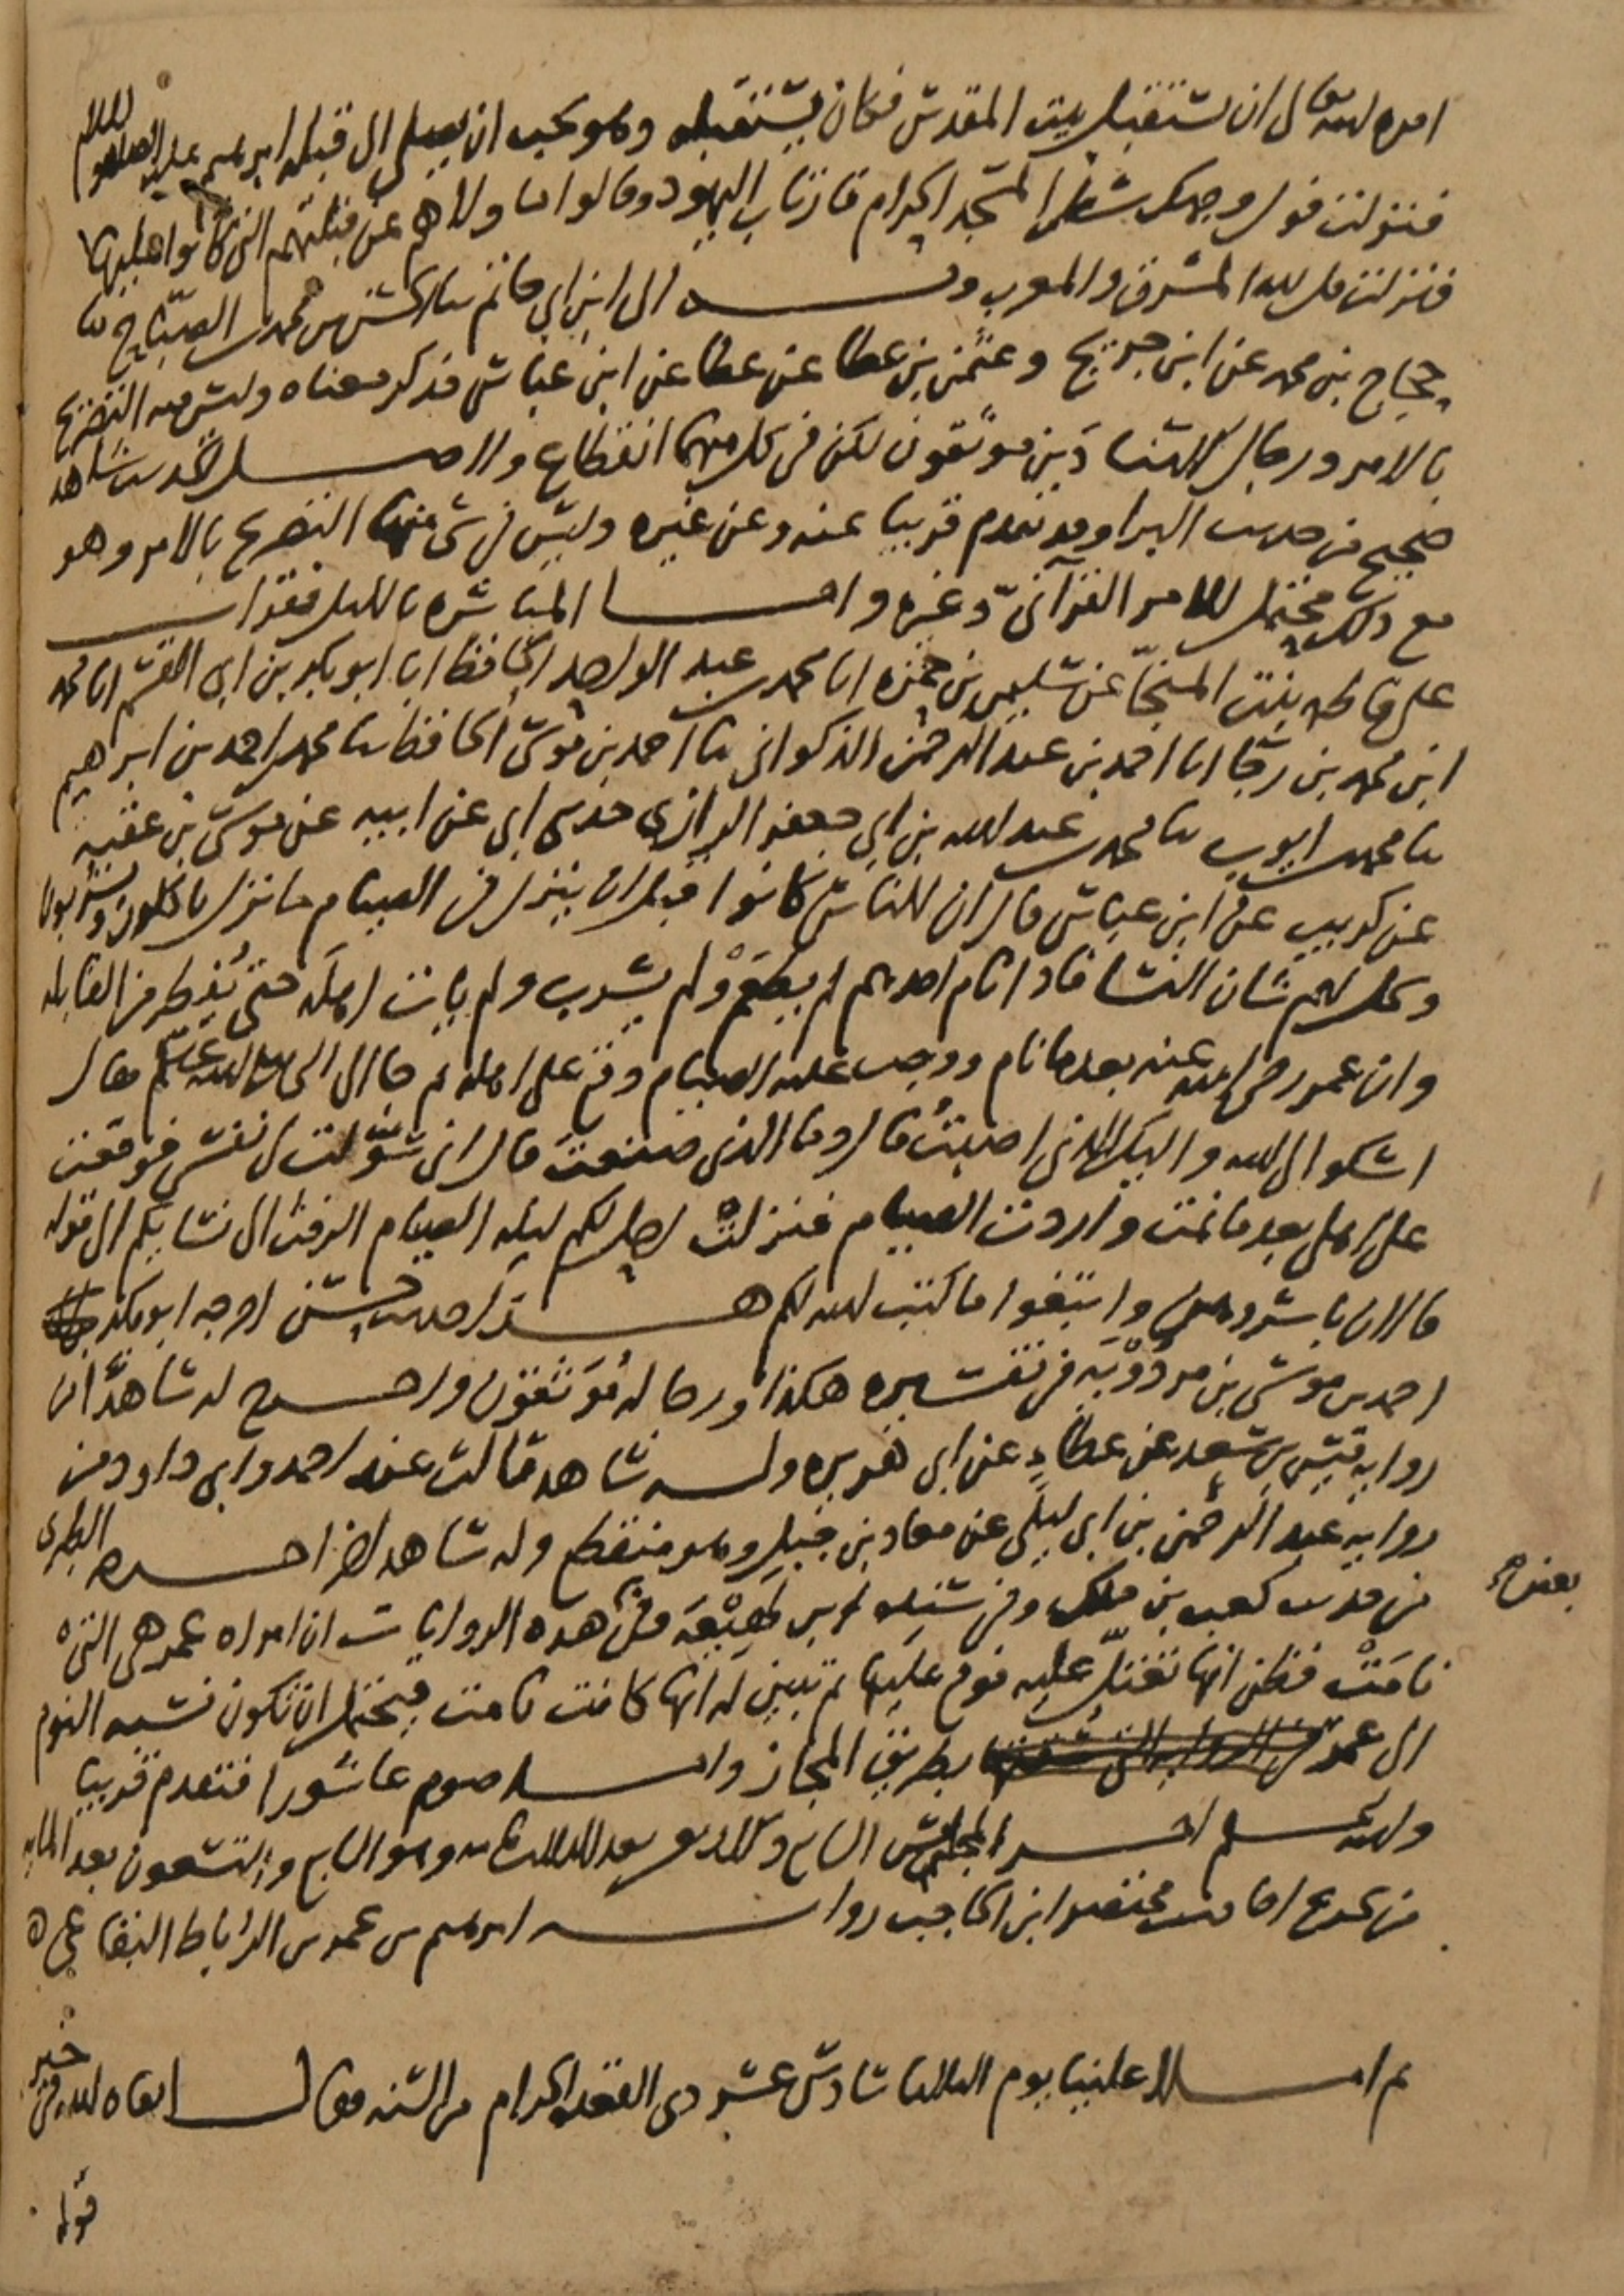 امره الله تعالى ان يستقبل بيت المقدس فكان يستقبله وهو يحب ان يصلي الى قبلة ابرهيم عليه الصلاه والسلام
فنزلت فول وجهك شطر المسجد الحرام فارتاب اليهود وقالوا ما ولاهم عن قبلتهم التي كانوا عليها
فنزلت قل لله المشرق والمغرب وبه الى ابن ابي حاتم ثنا الحسن بن محمد بن الصباح ثنا
حجاج بن محمد عن ابن جريج وعثمن بن عطا عن عطا عن ابن عباس فذكر معناه وليس فيه التصريح
بالامر ورجال الاسنادين موثقون لكن في كل منهما انقطاع ولاصل الحديث شاهد
صحيح من حديث البرا وقد تقدم قريبا عنه وعن غيره وليس في شي منها التصريح بالامر وهو
مع ذلك محتمل للامر القرآني وغيره واما المباشره بالليل فقرات
على فاطمه بنت المنجا عن سليمن بن حمزه انا محمد بن عبد الواحد الحافظ انا ابو بكر بن ابي القسم انا محمد
ابن محمد بن رجا انا احمد بن عبد الرحمن الذكواني ثنا احمد بن موسى الحافظ ثنا محمد بن احمد بن ابرهيم
ثنا محمد بن ايوب ثنا محمد بن عبد الله بن ابي جعفر الرازي حدثني ابي عن ابيه عن موسى بن عقبه
عن كريب عن ابن عباس قال ان الناس كانوا قبل ان ينزل في الصيام ما نزل ياكلون ويشربون
ويحل لهم شان النسا فاذا نام احدهم لم يطعم ولم يشرب ولم يات اهله حتى يفطر من القابله
وان عمر رضي الله عنه بعد ما نام ووجب عليه الصيام وقع على اهله ثم جا الى النبي صلى الله عليه وسلم فقال
اشكو الى الله واليك الذي اصبت قال وما الذي صنعت قال اني سولت لي نفسي فوقعت
على اهلي بعد ما نمت واردت الصيام فنزلت احل لكم ليلة الصيام الرفث الى نسائكم الى قوله
فالان باشروهن وابتغوا ما كتب الله لكم هذا حديث حسن اخرجه ابو بكر
احمد بن موسى بن مردويه في تفسيره هكذا ورجاله موثقون واخرج له شاهدا من
رواية قيس بن سعد عن عطاء عن ابي هريره وله شاهد ثالث عند احمد وابي داود من
رواية عبد الرحمن بن ابي ليلى عن معاذ بن جبل وهو منقطع وله شاهد اخر اخرجه الطبري
من حديث كعب بن ملك وفي سنده ابن لهيعه وفي هذه الروايات ان امراه عمر هي التي
بعض
نامت فظن انها تعتل عليه فوقع عليها ثم تبين له انها كانت نامت فيحتمل ان تكون نسبه النوم
الى عمر بطريق المجاز واما صوم عاشورا فتقدم قريبا
والله اعلم اخر المجلس السابع وهو السابع والتسعون بعد المايه
من تخريج احاديث مختصر ابن الحاجب رواية ابرهيم بن عمر بن الرباط البقاعي
ثم املا علينا يوم الثلاثا سادس عشر ذي القعده الحرام من السنه فقال ابقاه الله في خير
قوله